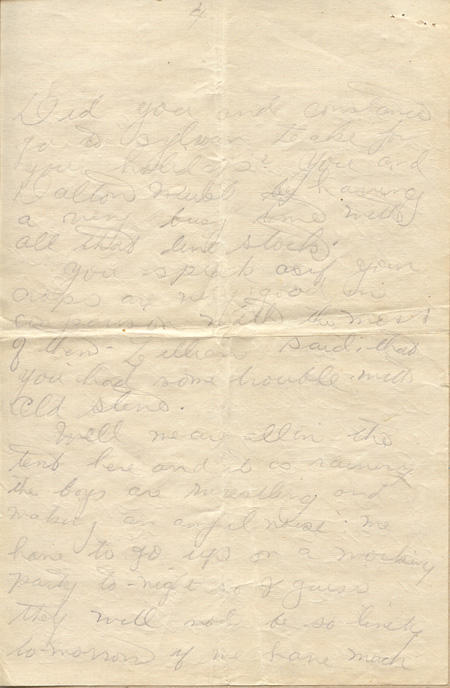 4
Did you and constance
go to Sylvan Lake for
your holidays? You and
Dalton must be having
a very busy time with
all that live stock.
You speak as if your
crops are very good in
comparison with the most
of them. Lillian said that
you had some trouble with
old steno.
Well we are all in the
tent here and it is raining
the boys are wrestling and
making an awful noise. We
have to go up on a working
party to-night so I guess
they will not be so lively
to-morrow if we have much